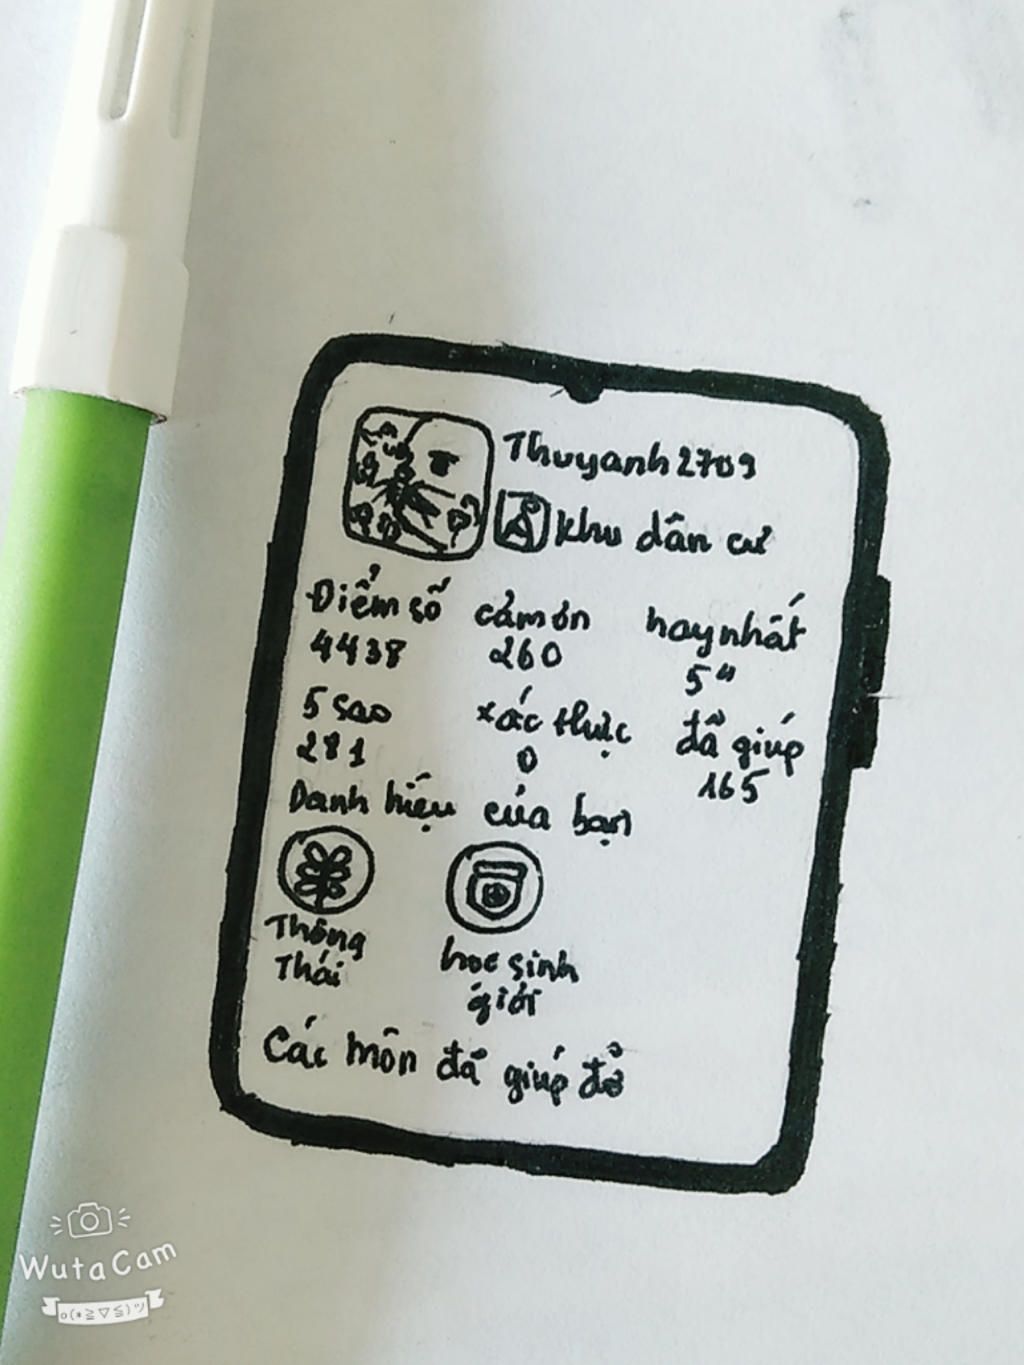 Thuyanh2709
khu dân cư
Điểm số cảm ơn hay nhất
4438 260 5"
5 sao xác thực đã giúp
281 0 165
Danh hiệu của bạn
Thông học sinh
Thái giỏi
Các môn đã giúp đỡ
WutaCam
o(*≧▽≦)ツ